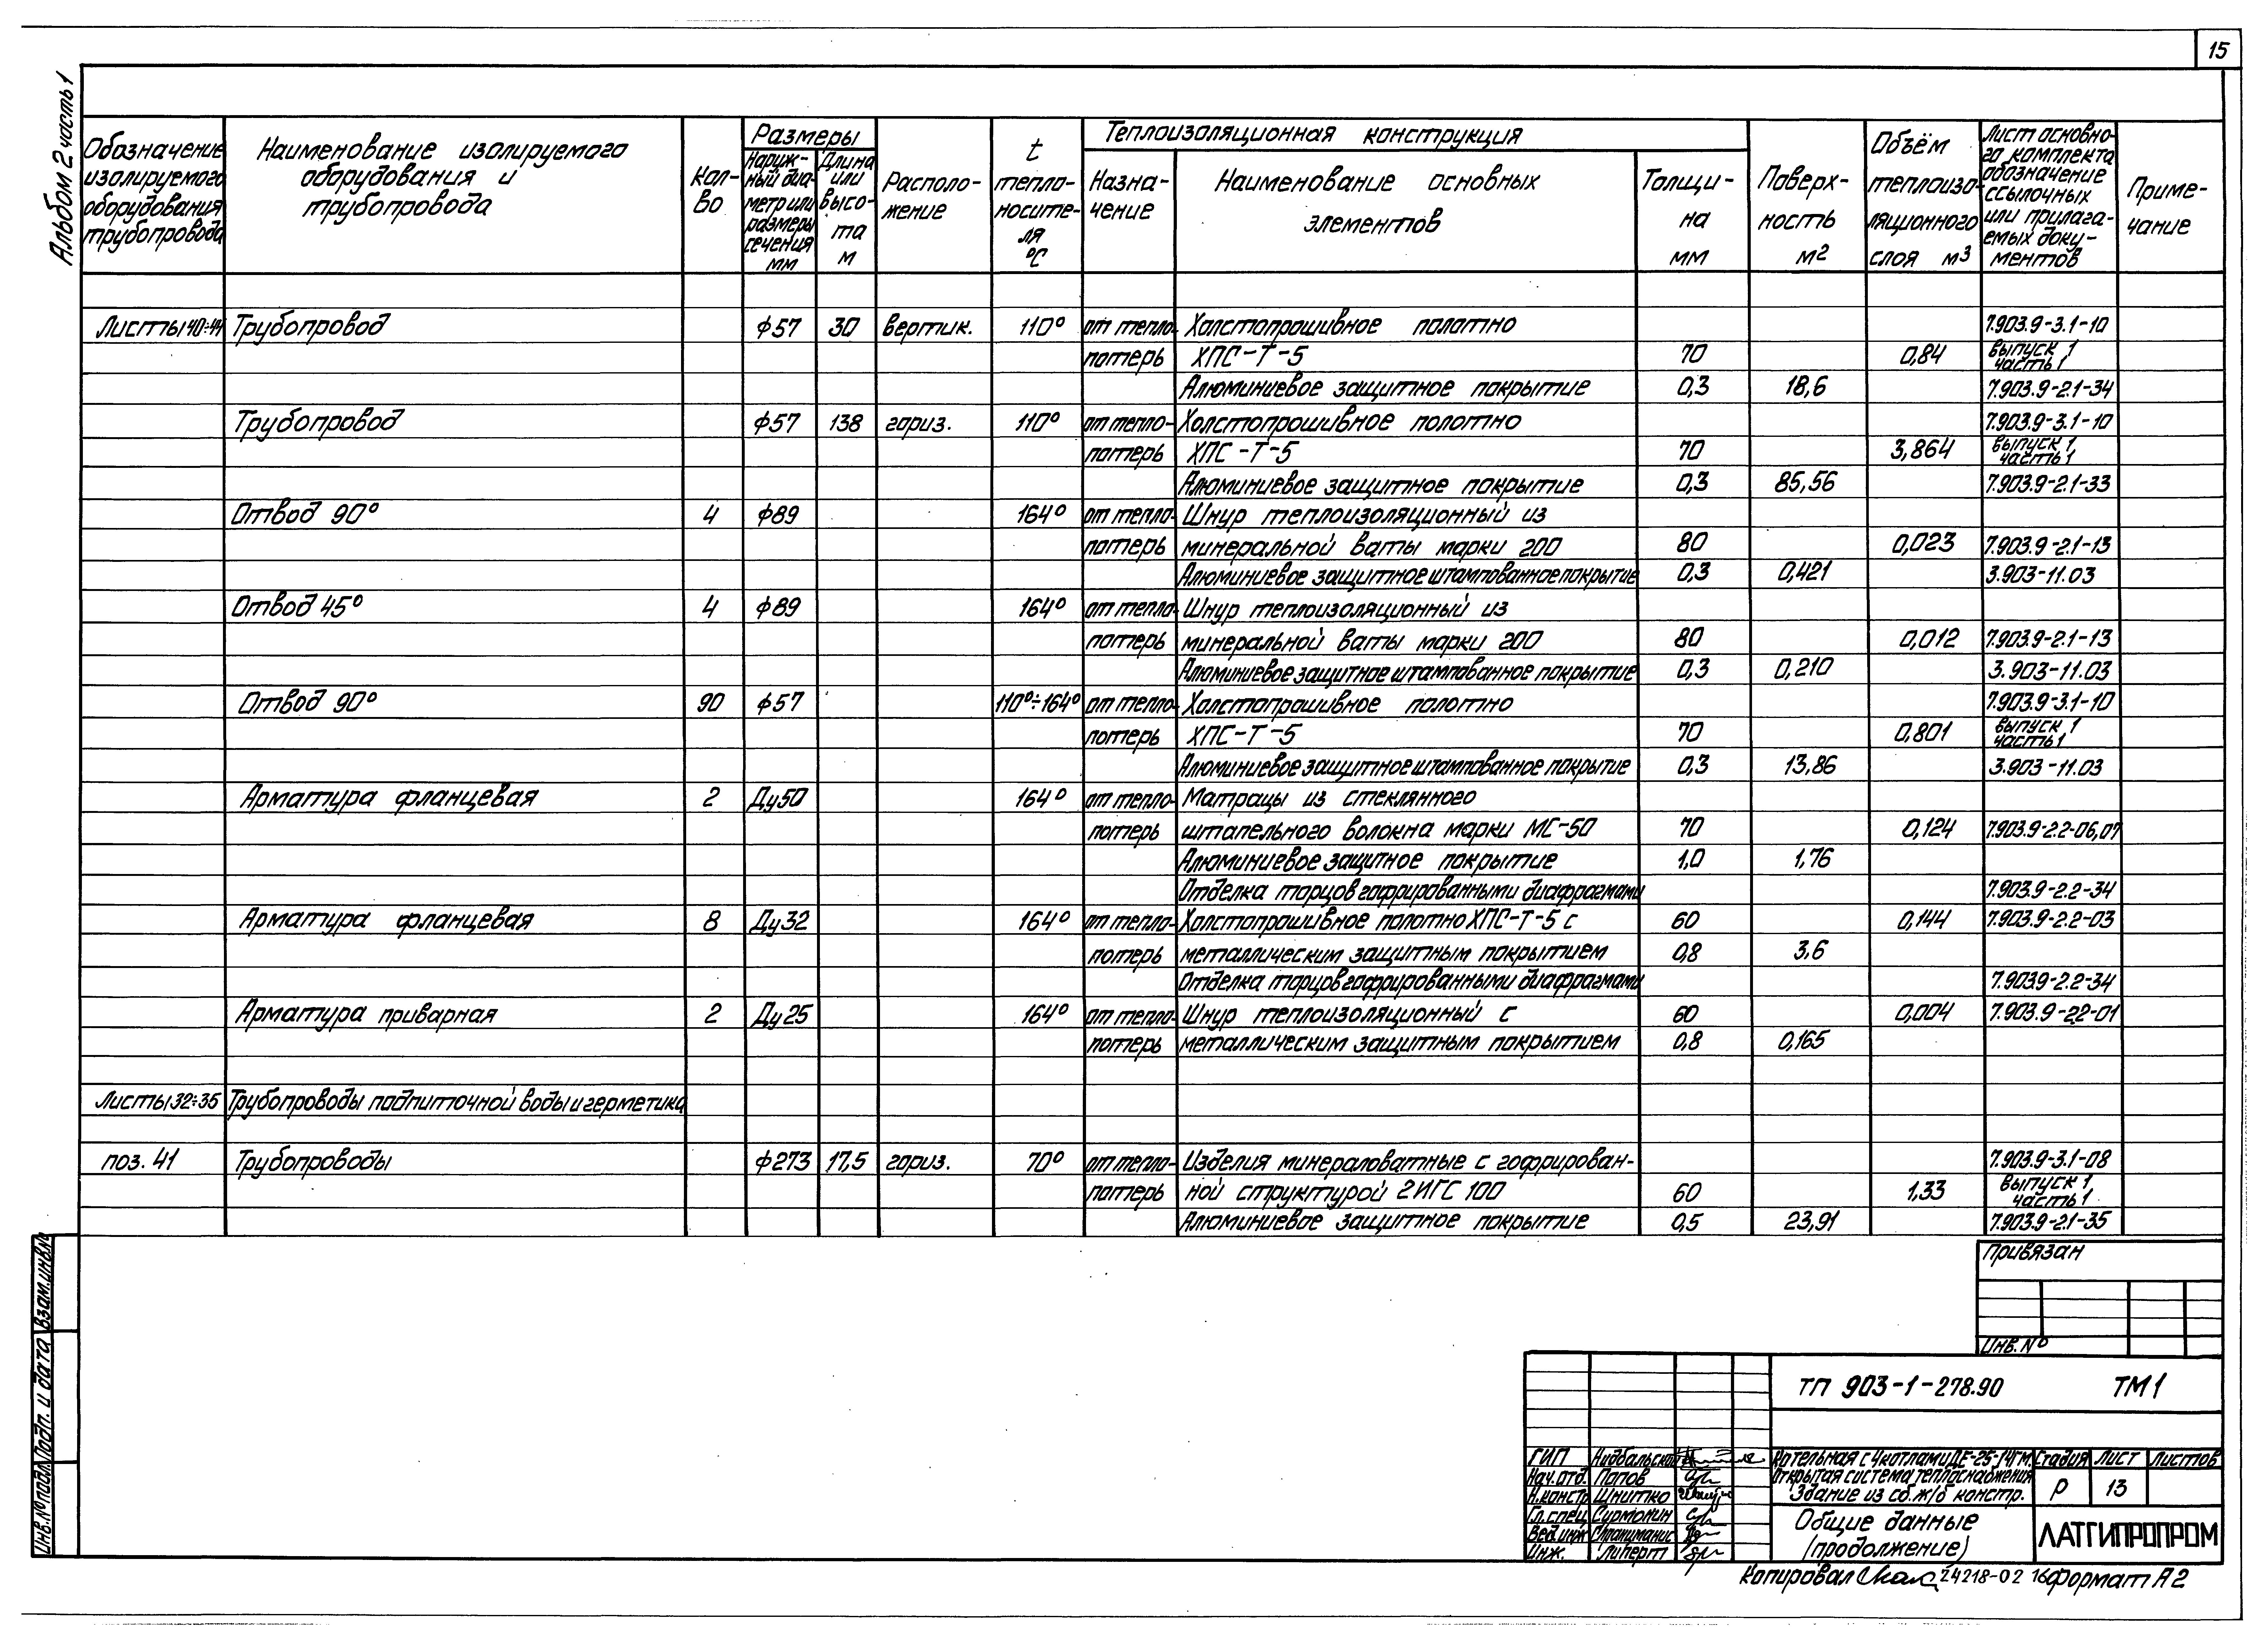 15
Альбом 2 часть 1
Обозначение изолируемого оборудования трубопровода
Наименование изолируемого оборудования и трубопровода
Кол-во
Размеры
Наруж-ный диа-метр или размеры сечения мм
Длина или высо-та м
Располо-жение
t тепло-носите-ля °С
Теплоизоляционная конструкция
Назна-чение
Наименование основных элементов
Толщи-на мм
Поверх-ность м2
Объём теплоизо-ляционного слоя м3
Лист основно-го комплекта обозначение ссылочных или прилага-емых доку-ментов
Приме-чание
Листы 40÷44 Трубопровод ф57 30 вертик. 110° от тепло- Холстопрошивное полотно 7.903.9-3.1-10
потерь ХПС-Т-5 70 0,84 выпуск 1 часть 1
Алюминиевое защитное покрытие 0,3 18,6 7.903.9-2.1-34
Трубопровод ф57 138 гориз. 110° от тепло- Холстопрошивное полотно 7.903.9-3.1-10
потерь ХПС-Т-5 70 3,864 выпуск 1 часть 1
Алюминиевое защитное покрытие 0,3 85,56 7.903.9-2.1-33
Отвод 90° 4 ф89 164° от тепло- Шнур теплоизоляционный из
потерь минеральной ваты марки 200 80 0,023 7.903.9-2.1-13
Алюминиевое защитное штампованное покрытие 0,3 0,421 3.903-11.03
Отвод 45° 4 ф89 164° от тепло- Шнур теплоизоляционный из
потерь минеральной ваты марки 200 80 0,012 7.903.9-2.1-13
Алюминиевое защитное штампованное покрытие 0,3 0,210 3.903-11.03
Отвод 90° 90 ф57 110°÷164° от тепло- Холстопрошивное полотно 7.903.9-3.1-10
потерь ХПС-Т-5 70 0,801 выпуск 1 часть 1
Алюминиевое защитное штампованное покрытие 0,3 13,86 3.903-11.03
Арматура фланцевая 2 Ду50 164° от тепло- Матрацы из стеклянного
потерь штапельного волокна марки МС-50 70 0,124 7.903.9-2.2-06,07
Алюминиевое защитное покрытие 1,0 1,76
Отделка торцов гофрированными диафрагмами 7.903.9-2.2-34
Арматура фланцевая 8 Ду32 164° от тепло- Холстопрошивное полотно ХПС-Т-5 с 60 0,144 7.903.9-2.2-03
потерь металлическим защитным покрытием 0,8 3,6
Отделка торцов гофрированными диафрагмами 7.9039-2.2-34
Арматура приварная 2 Ду25 164° от тепло- Шнур теплоизоляционный с 60 0,004 7.903.9-2.2-01
потерь металлическим защитным покрытием 0,8 0,165
Листы 32÷35 Трубопроводы подпиточной воды и герметика
поз. 41 Трубопроводы ф273 17,5 гориз. 70° от тепло- Изделия минераловатные с гофрирован- 7.903.9-3.1-08
потерь ной структурой 2ИГС 100 60 1,33 выпуск 1, часть 1
Алюминиевое защитное покрытие 0,5 23,91 7.903.9-2.1-35
Привязан
Инв. №
ТП 903-1-278.90 ТМ1
ГИП
Нач. отд. Попов
Н. контр. Шнитко
Гл. спец. Сурмонин
Вед. инж.
Инж. Липерт
Котельная с 4 котлами ДЕ-25-14ГМ.
Открытая система теплоснабжения
Здание из сб. ж/б констр.
Стадия Лист Листов
Р 13
Общие данные
(продолжение)
ЛАТГИПРОПРОМ
Копировал 24218-02 16 Формат А2
Инв. № подл. Подп. и дата Взам. инв. №